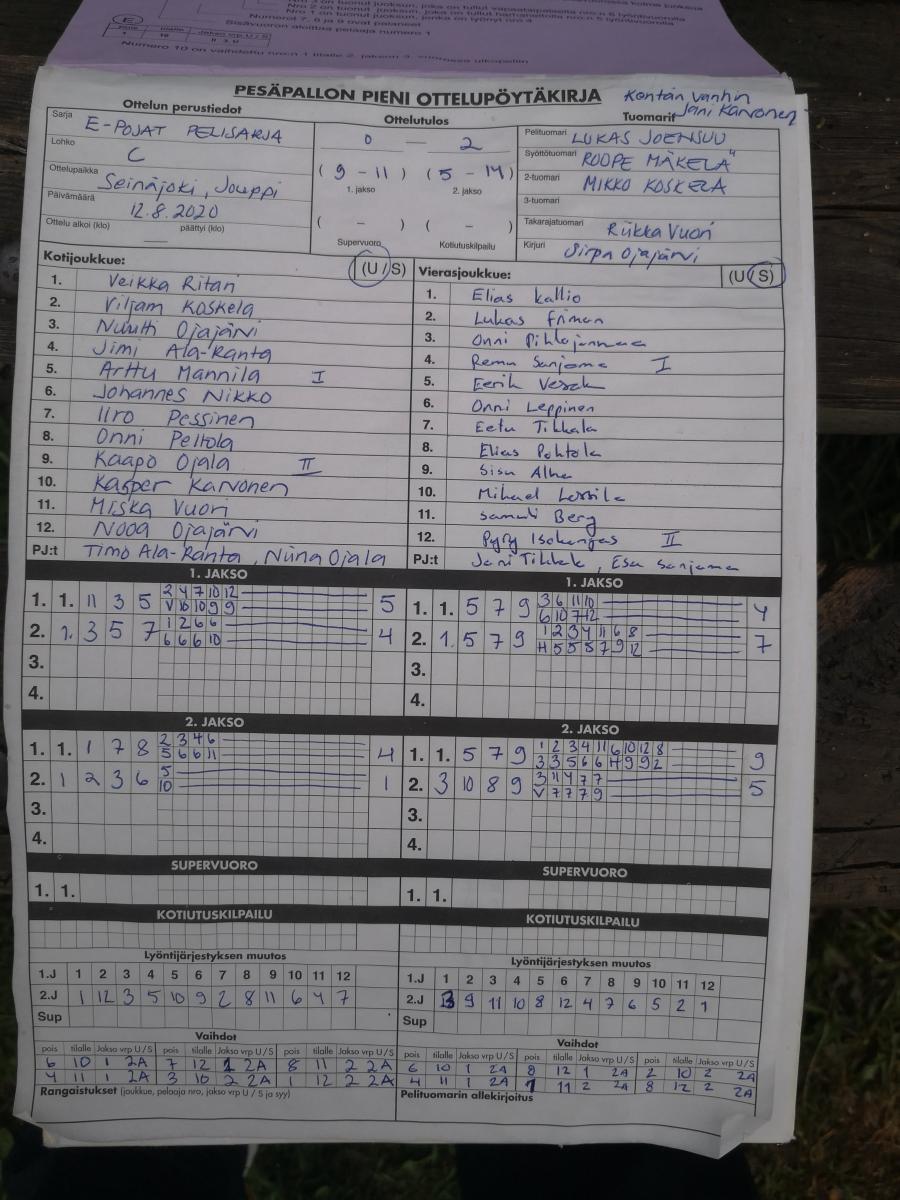 Numerot 7, 8 ja 9 ovat palanneet
Sisävuoron aloittaa pelaaja numero 1
PESÄPALLON PIENI OTTELUPÖYTÄKIRJA
Kentän vanhin
Jani Karvonen
Ottelun perustiedot
Ottelutulos
Tuomarit
Sarja E-POJAT PELISARJA
Lohko C
Ottelupaikka Seinäjoki, Jouppi
Päivämäärä 12.8.2020
Ottelu alkoi (klo) päättyi (klo)
0 — 2
(9 - 11) (5 - 14)
1. jakso 2. jakso
( - ) ( - )
Supervuoro Kotiutuskilpailu
Pelituomari LUKAS JOENSUU
Syöttötuomari ROOPE MÄKELÄ
2-tuomari MIKKO KOSKELA
3-tuomari
Takarajatuomari Riikka Vuori
Kirjuri Sirpa Ojajärvi
Kotijoukkue: (U / S)
1. Veikka Ritari
2. Viljam Koskela
3. Nuutti Ojajärvi
4. Jimi Ala-Ranta
5. Arttu Mannila I
6. Johannes Nikko
7. Iiro Pessinen
8. Onni Peltola
9. Kaapo Ojala II
10. Kasper Karvonen
11. Miska Vuori
12. Nooa Ojajärvi
PJ:t Timo Ala-Ranta, Niina Ojala
Vierasjoukkue: (U / S)
1. Elias Kallio
2. Lukas Friman
3. Onni
4. Remu Sanjama I
5. Eerik
6. Onni Leppinen
7. Eetu Tikkala
8. Elias Pohtola
9. Sisu Alha
10. Mihael
11. Samuli Berg
12. Pyry Isokangas II
PJ:t Jani Tikkala, Esa Sanjama
1. JAKSO
1. 1. 11 3 5 2 4 7 10 12 5
V 10 10 9 9
2. 1. 3 5 7 1 2 6 6 4
6 6 6 10
3.
4.
1. JAKSO
1. 1. 5 7 9 3 6 11 10 4
6 10 7 12
2. 1. 5 7 9 1 2 3 4 11 6 8 7
H 5 5 5 7 9 12
3.
4.
2. JAKSO
1. 1. 1 7 8 2 3 4 6 4
5 6 6 11
2. 1 2 3 6 5 1
10
3.
4.
2. JAKSO
1. 1. 5 7 9 1 2 3 4 11 6 10 12 8 9
3 3 5 6 6 H 9 9 2
2. 3 10 8 9 3 11 4 7 7 5
V 7 7 7 9
3.
4.
SUPERVUORO
1. 1.
SUPERVUORO
1. 1.
KOTIUTUSKILPAILU
KOTIUTUSKILPAILU
Lyöntijärjestyksen muutos
1.J 1 2 3 4 5 6 7 8 9 10 11 12
2.J 1 12 3 5 10 9 2 8 11 6 4 7
Sup
Lyöntijärjestyksen muutos
1.J 1 2 3 4 5 6 7 8 9 10 11 12
2.J 3 9 11 10 8 12 4 7 6 5 2 1
Sup
Vaihdot
pois tilalle Jakso vrp U / S pois tilalle Jakso vrp U / S pois tilalle Jakso vrp U / S
6 10 1 2A 7 12 1 2A 8 11 2 2A
4 11 1 2A 3 10 2 2A 1 12 2 2A
Rangaistukset (joukkue, pelaaja nro, jakso vrp U / S ja syy)
Vaihdot
pois tilalle Jakso vrp U / S pois tilalle Jakso vrp U / S pois tilalle Jakso vrp U / S
6 10 1 2A 8 12 1 2A 2 10 2 2A
4 11 1 2A 1 11 2 2A 8 12 2 2A
Pelituomarin allekirjoitus